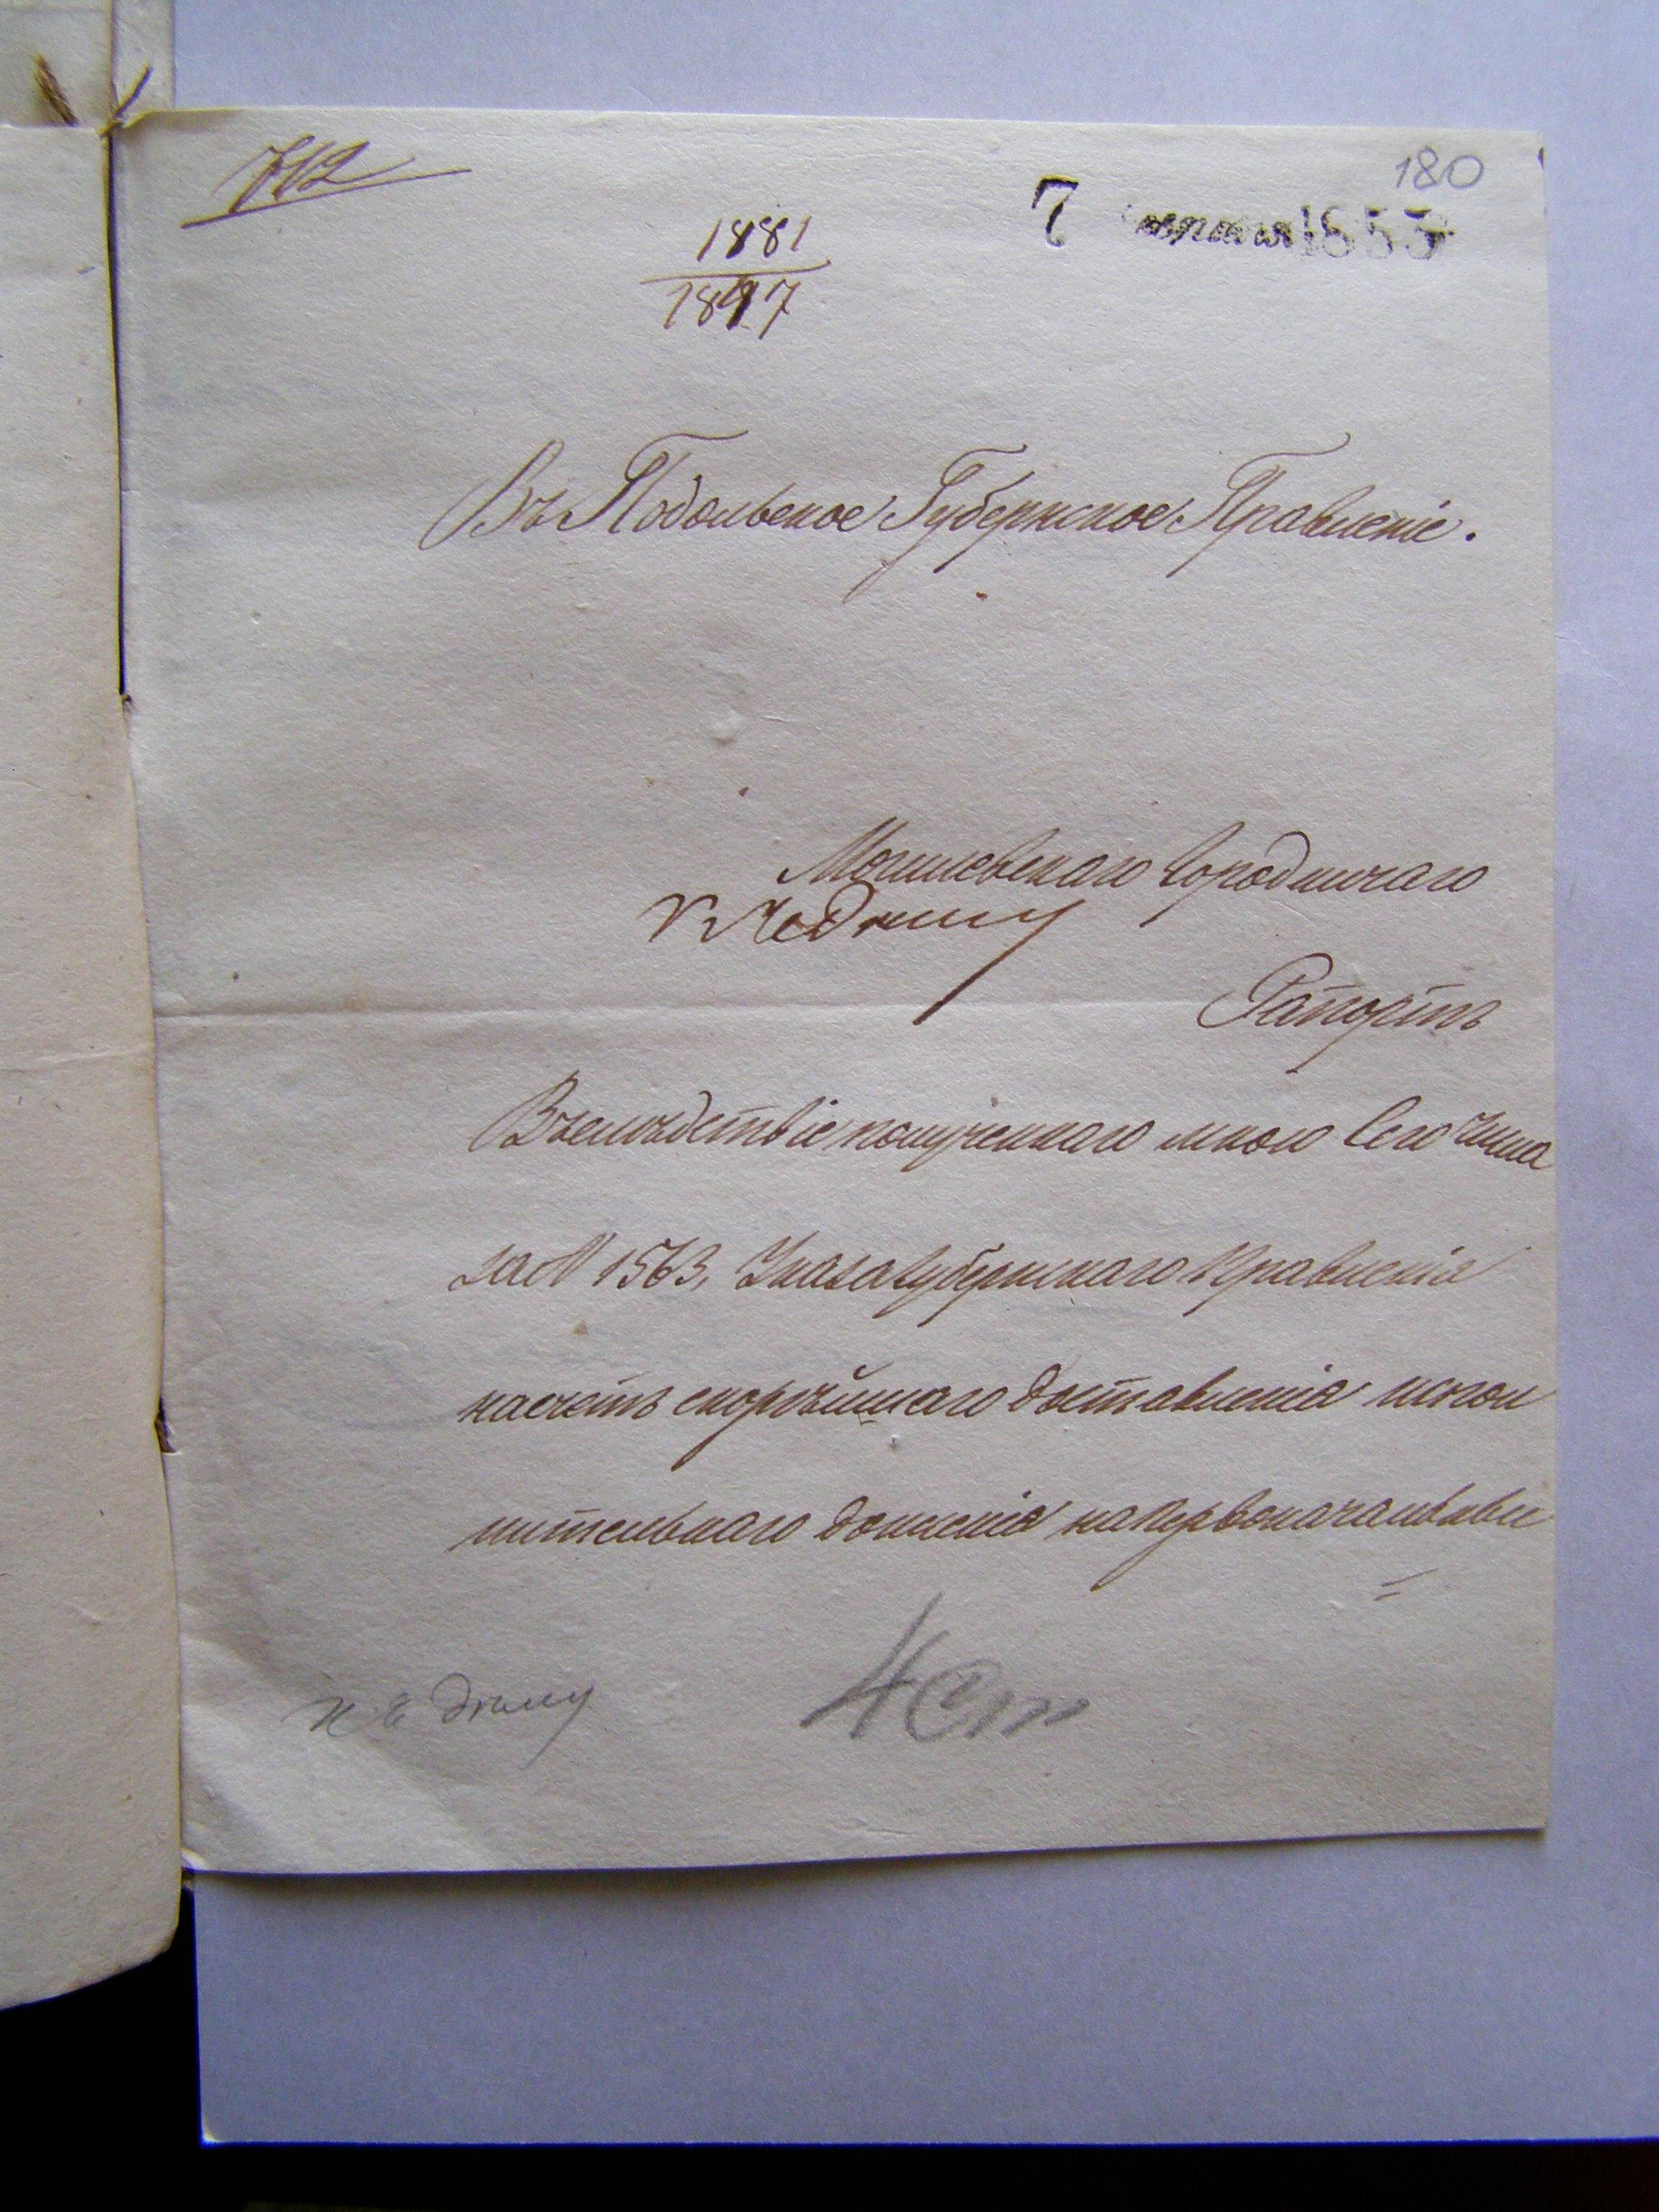 712
180
1881
1897
7 1853
Въ Подольское Губернское Правленіе.
Могилевскаго Городничаго
К дѣлу
Рапортъ
Въ слѣдствіе полученнаго мною Сего числа
за № 1563, Указа Губернскаго Правленія
насчетъ скорѣйшаго доставленія испол
нительнаго донесенія на первоначальные
=
дѣлу
4 Ст